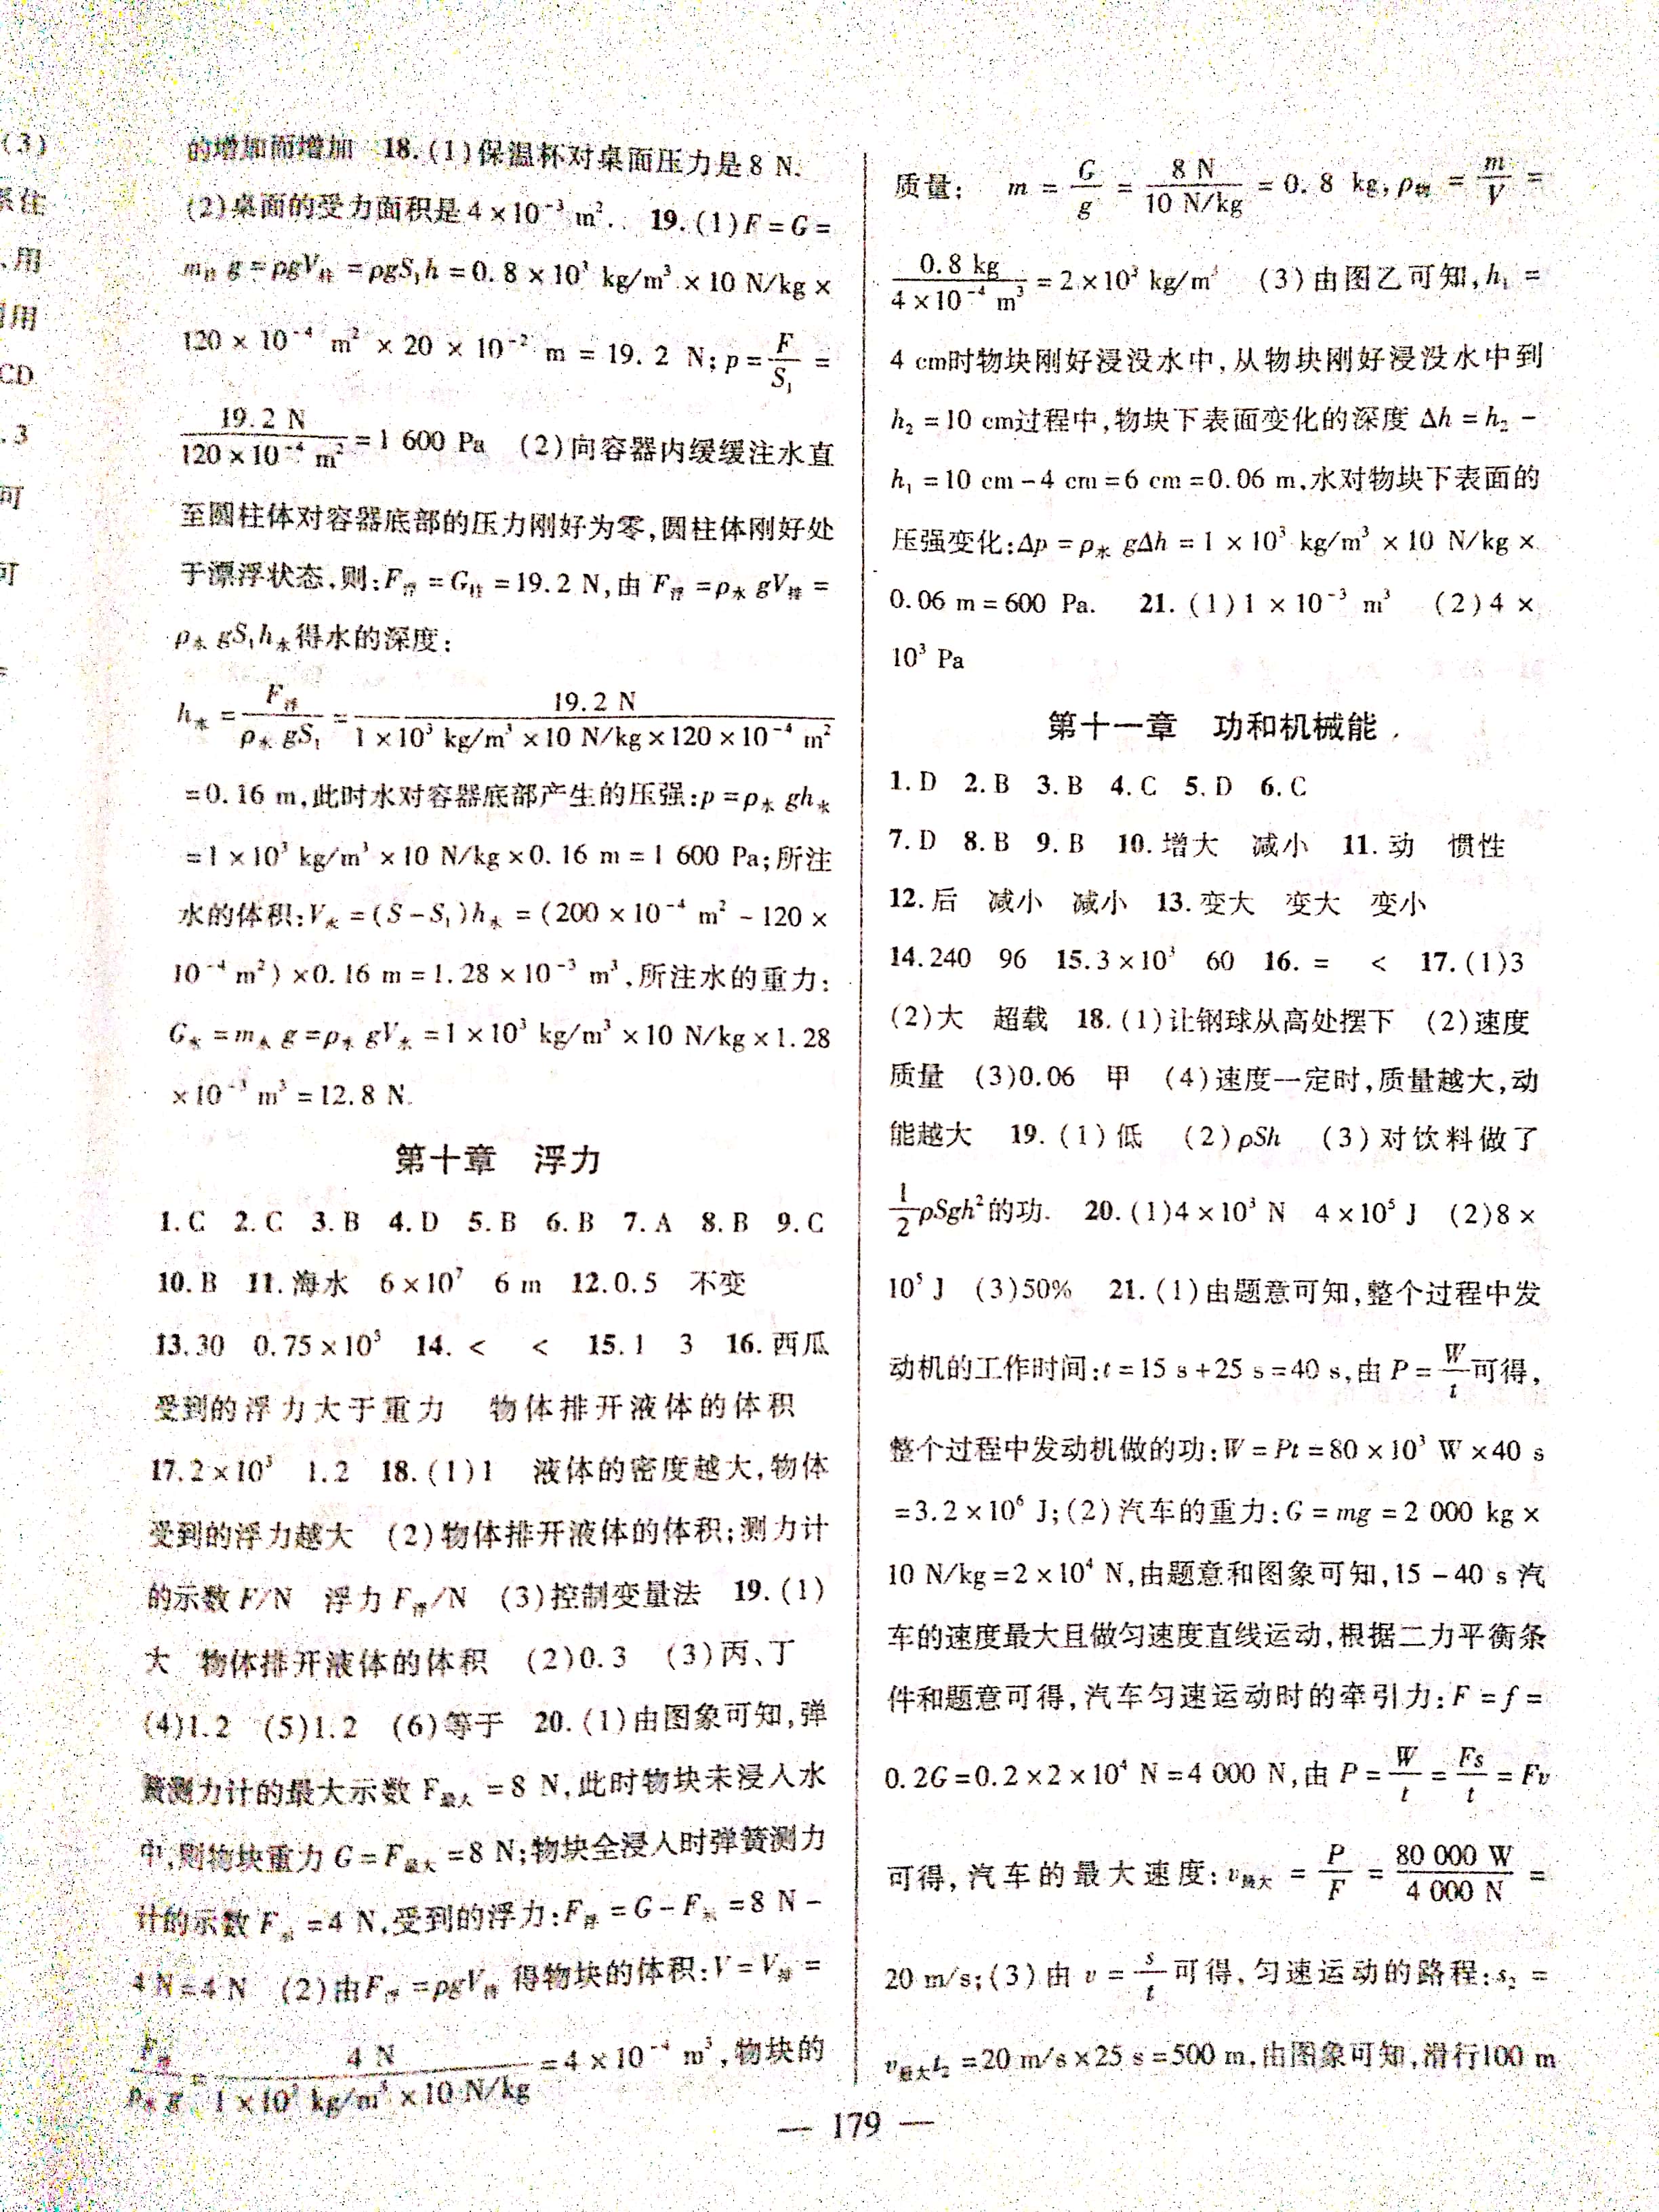 (3)
系住
、用
用
CD
.3
可
可
的增加而增加 18.(1)保温杯对桌面压力是8 N.
(2)桌面的受力面积是4×10⁻³ m². 19.(1)F=G=
m柱 g=ρgV柱=ρgS₁h=0.8×10³ kg/m³×10 N/kg×
120×10⁻⁴ m²×20×10⁻² m=19.2 N;p=F/S₁=
19.2 N/(120×10⁻⁴ m²)=1 600 Pa (2)向容器内缓缓注水直
至圆柱体对容器底部的压力刚好为零,圆柱体刚好处
于漂浮状态,则:F浮=G柱=19.2 N,由F浮=ρ水 gV排=
ρ水 gS₁h水得水的深度:
h水=F浮/(ρ水 gS₁)=19.2 N/(1×10³ kg/m³×10 N/kg×120×10⁻⁴ m²)
=0.16 m,此时水对容器底部产生的压强:p=ρ水 gh水
=1×10³ kg/m³×10 N/kg×0.16 m=1 600 Pa;所注
水的体积:V水=(S-S₁)h水=(200×10⁻⁴ m²-120×
10⁻⁴ m²)×0.16 m=1.28×10⁻³ m³,所注水的重力:
G水=m水 g=ρ水 gV水=1×10³ kg/m³×10 N/kg×1.28
×10⁻³ m³=12.8 N.
第十章 浮力
1.C 2.C 3.B 4.D 5.B 6.B 7.A 8.B 9.C
10.B 11.海水 6×10⁷ 6 m 12.0.5 不变
13.30 0.75×10³ 14.< < 15.1 3 16.西瓜
受到的浮力大于重力 物体排开液体的体积
17.2×10³ 1.2 18.(1)1 液体的密度越大,物体
受到的浮力越大 (2)物体排开液体的体积;测力计
的示数F/N 浮力F浮/N (3)控制变量法 19.(1)
大 物体排开液体的体积 (2)0.3 (3)丙、丁
(4)1.2 (5)1.2 (6)等于 20.(1)由图象可知,弹
簧测力计的最大示数F最大=8 N,此时物块未浸入水
中,则物块重力G=F最大=8 N;物块全浸入时弹簧测力
计的示数F示=4 N,受到的浮力:F浮=G-F示=8 N-
4 N=4 N (2)由F浮=ρgV排得物块的体积:V=V排=
F浮/(ρ水 g)=4 N/(1×10³ kg/m³×10 N/kg)=4×10⁻⁴ m³,物块的
质量: m=G/g=8 N/(10 N/kg)=0.8 kg;ρ物=m/V=
0.8 kg/(4×10⁻⁴ m³)=2×10³ kg/m³ (3)由图乙可知,h₁=
4 cm时物块刚好浸没水中,从物块刚好浸没水中到
h₂=10 cm过程中,物块下表面变化的深度Δh=h₂-
h₁=10 cm-4 cm=6 cm=0.06 m,水对物块下表面的
压强变化:Δp=ρ水 gΔh=1×10³ kg/m³×10 N/kg×
0.06 m=600 Pa. 21.(1)1×10⁻³ m³ (2)4×
10³ Pa
第十一章 功和机械能
1.D 2.B 3.B 4.C 5.D 6.C
7.D 8.B 9.B 10.增大 减小 11.动 惯性
12.后 减小 减小 13.变大 变大 变小
14.240 96 15.3×10³ 60 16.= < 17.(1)3
(2)大 超载 18.(1)让钢球从高处摆下 (2)速度
质量 (3)0.06 甲 (4)速度一定时,质量越大,动
能越大 19.(1)低 (2)ρSh (3)对饮料做了
1/2ρSgh²的功. 20.(1)4×10³ N 4×10⁵ J (2)8×
10⁵ J (3)50% 21.(1)由题意可知,整个过程中发
动机的工作时间:t=15 s+25 s=40 s,由P=W/t可得,
整个过程中发动机做的功:W=Pt=80×10³ W×40 s
=3.2×10⁶ J;(2)汽车的重力:G=mg=2 000 kg×
10 N/kg=2×10⁴ N,由题意和图象可知,15-40 s汽
车的速度最大且做匀速度直线运动,根据二力平衡条
件和题意可得,汽车匀速运动时的牵引力:F=f=
0.2G=0.2×2×10⁴ N=4 000 N,由P=W/t=Fs/t=Fv
可得,汽车的最大速度:v最大=P/F=80 000 W/4 000 N=
20 m/s;(3)由v=s/t可得,匀速运动的路程:s₂=
v最大t₂=20 m/s×25 s=500 m,由图象可知,滑行100 m
— 179 —